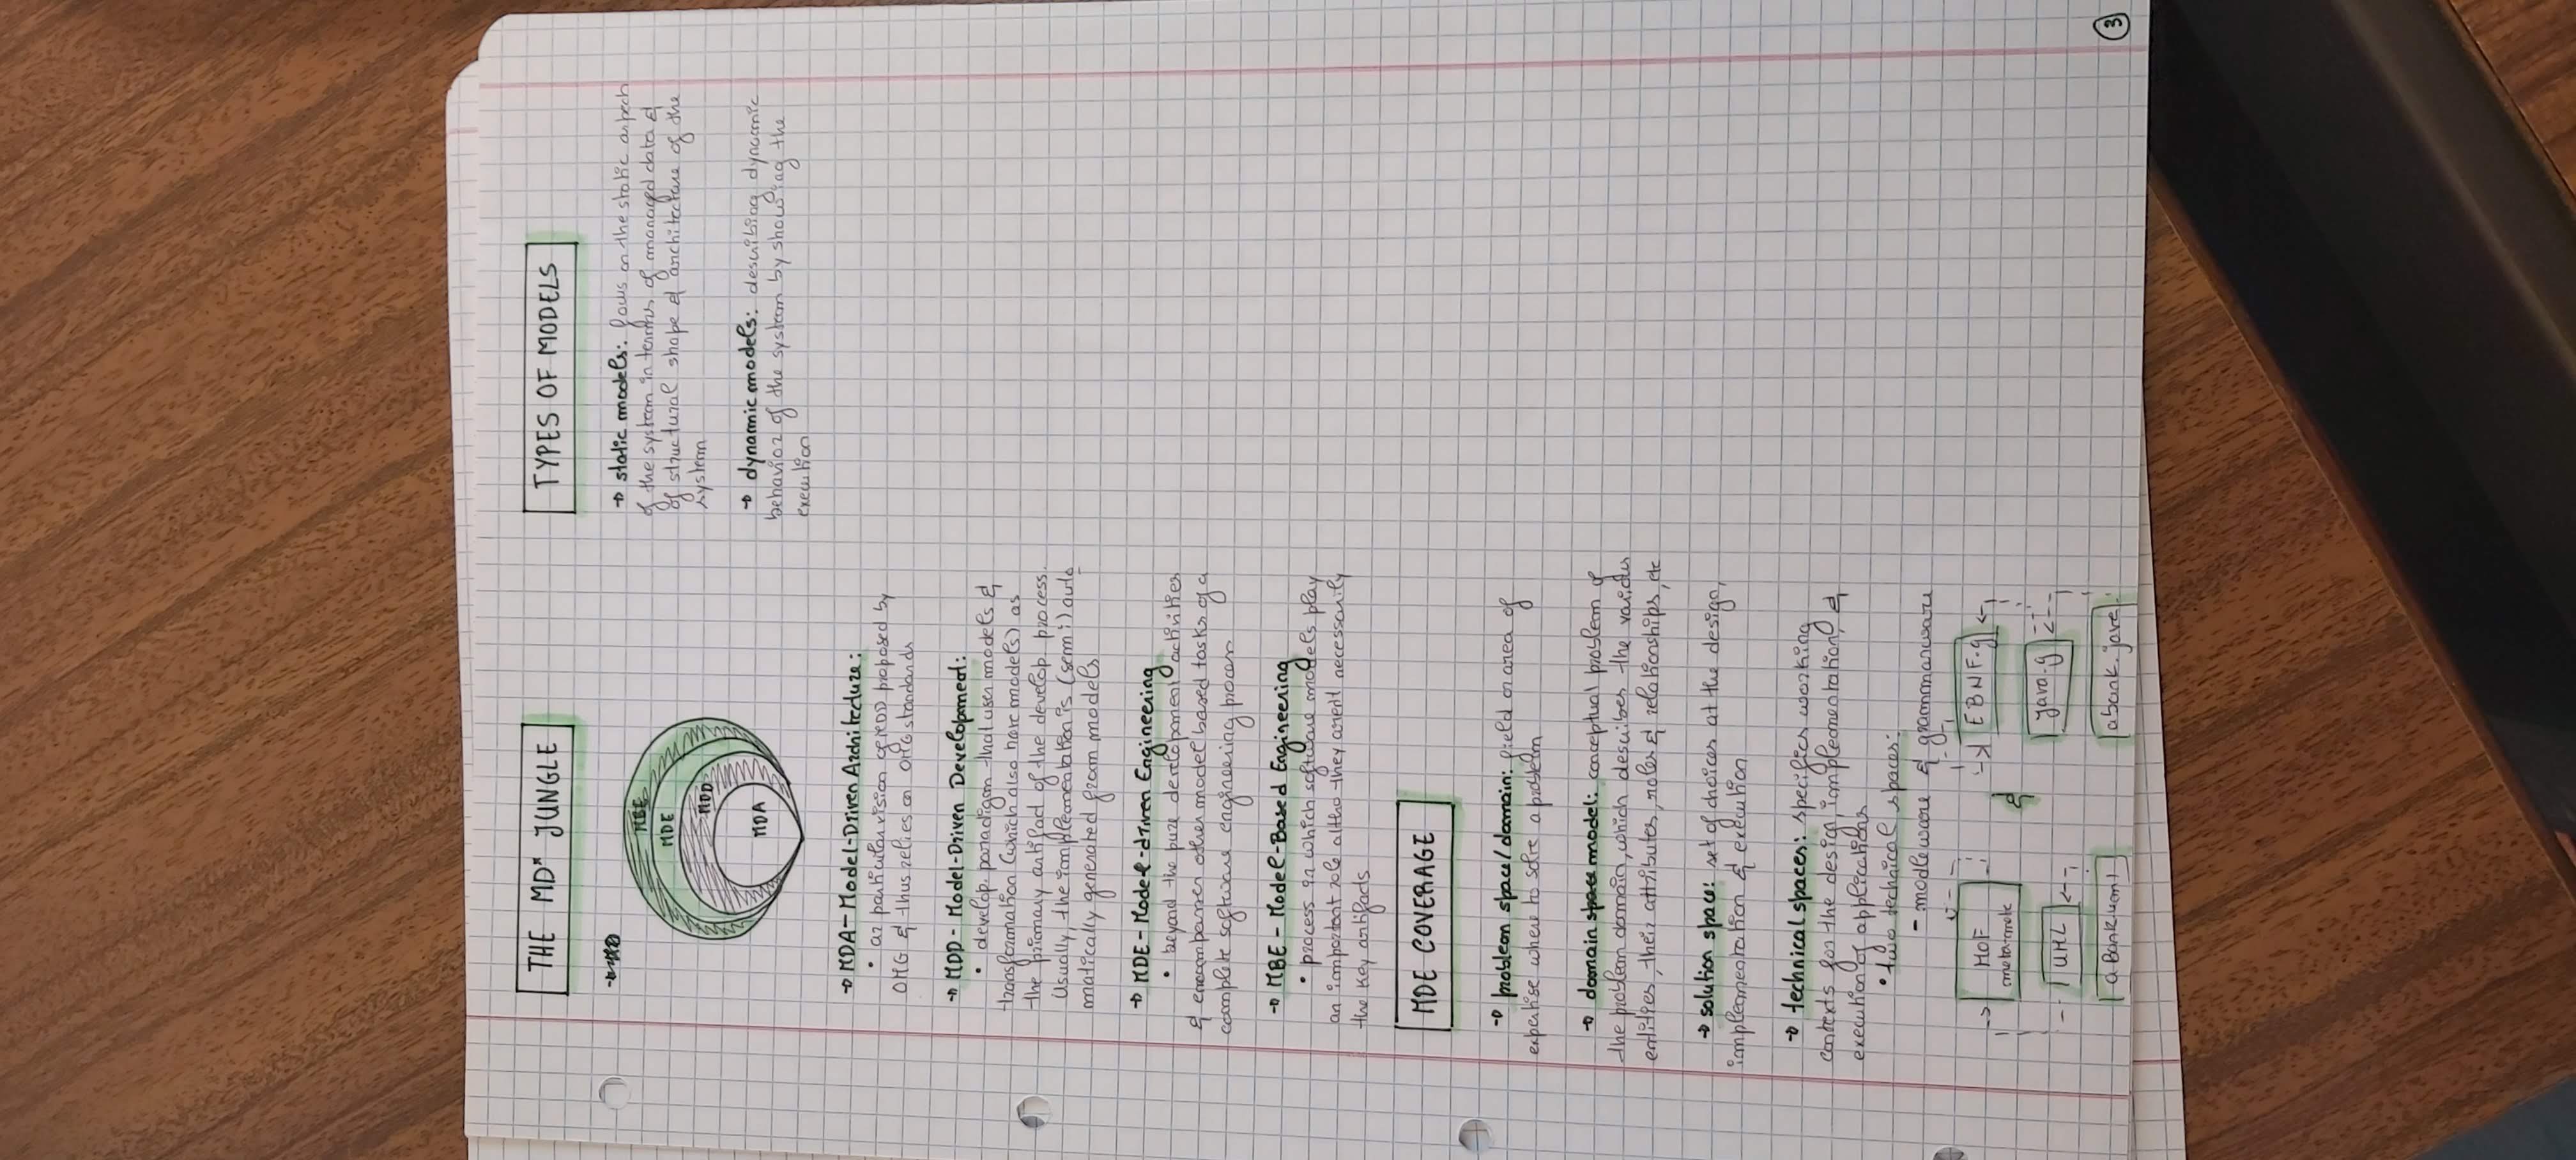 THE MD* JUNGLE
MBE
MDE
MDD
MDA
→ MDA - Model-Driven Architecture:
• a particular vision of MDD proposed by
OMG & thus relies on OMG standards
→ MDD - Model-Driven Development:
• develop. paradigm that uses models &
transformation (which also have models) as
the primary artifact of the develop. process.
Usually, the implementation is (semi) auto-
matically generated from models
→ MDE - Model-driven Engineering
• beyond the pure development activities
& encompasses other model based tasks of a
complete software engineering process
→ MBE - Model-Based Engineering
• process in which software models play
an important role altho they arent necessarily
the key artifacts
MDE COVERAGE
→ problem space/domain: field or area of
expertise where to solve a problem
→ domain model: conceptual problem of
the problem domain, which describes the various
entities, their attributes, roles & relationships, etc
→ solution space: set of choices at the design,
implementation & execution
→ technical spaces: specifies working
contexts for the design, implementation, &
execution of applications
• two technical spaces:
- modelware & grammarware
MOF
EBNF.g
&
UML
java.g
aBank.uml
abank.java
TYPES OF MODELS
→ static models: focus on the static aspect
of the system in terms of managed data &
of structural shape & architecture of the
system
→ dynamic models: describing dynamic
behavior of the system by showing the
execution
3